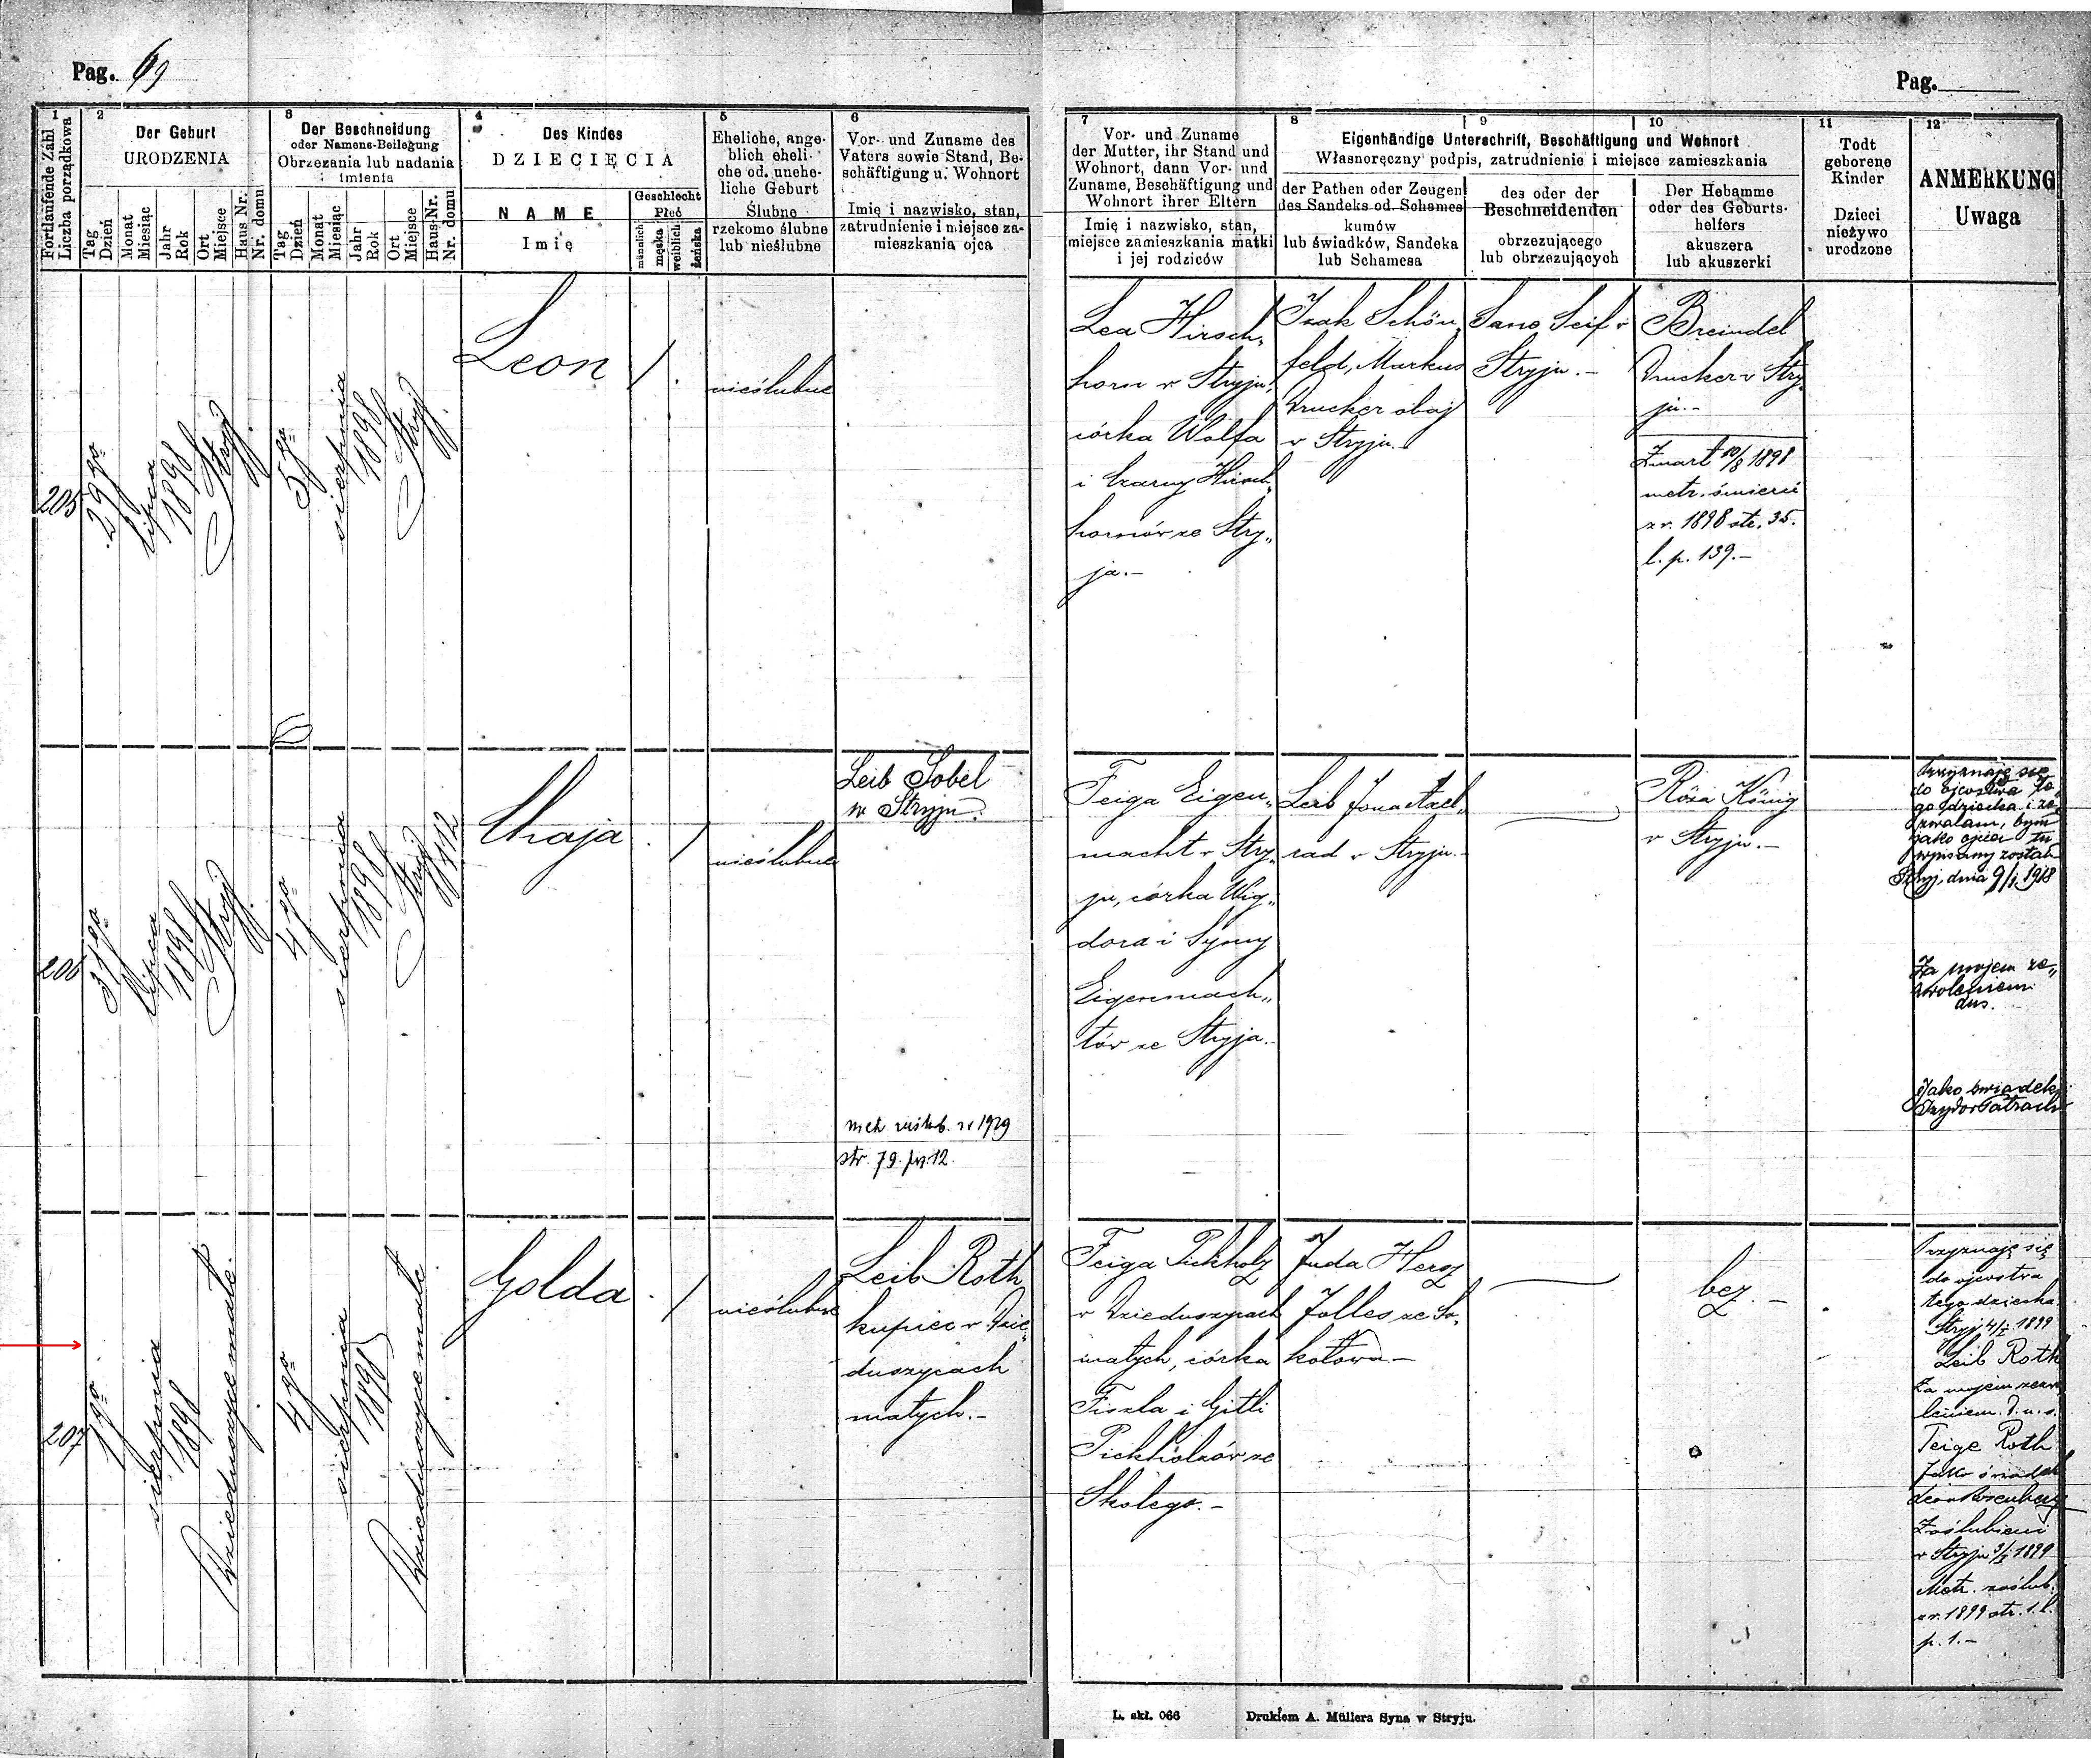 Pag. 69
Pag.
1
Fortlaufende Zahl
Liczba porządkowa
2
Der Geburt
URODZENIA
Tag
Dzień
Monat
Miesiąc
Jahr
Rok
Ort
Miejsce
Haus Nr.
Nr. domu
3
Der Beschneidung
oder Namens-Beilegung
Obrzezania lub nadania
imienia
Tag
Dzień
Monat
Miesiąc
Jahr
Rok
Ort
Miejsce
Haus-Nr.
Nr. domu
4
Des Kindes
DZIECIĘCIA
NAME
Imię
Geschlecht
Płeć
männlich
męska
weiblich
żeńska
5
Eheliche, ange-
blich eheli-
che od. unehe-
liche Geburt
Ślubne
rzekomo ślubne
lub nieślubne
6
Vor- und Zuname des
Vaters sowie Stand, Be-
schäftigung u. Wohnort
Imię i nazwisko, stan,
zatrudnienie i miejsce za-
mieszkania ojca
7
Vor- und Zuname
der Mutter, ihr Stand und
Wohnort, dann Vor- und
Zuname, Beschäftigung und
Wohnort ihrer Eltern
Imię i nazwisko, stan,
miejsce zamieszkania matki
i jej rodziców
8
9
10
Eigenhändige Unterschrift, Beschäftigung und Wohnort
Własnoręczny podpis, zatrudnienie i miejsce zamieszkania
der Pathen oder Zeugen
des Sandeks od. Schames
kumów
lub świadków, Sandeka
lub Schamesa
des oder der
Beschneidenden
obrzezującego
lub obrzezujących
Der Hebamme
oder des Geburts-
helfers
akuszera
lub akuszerki
11
Todt
geborene
Kinder
Dzieci
nieżywo
urodzone
12
ANMERKUNG
Uwaga
205
29go
lipca
1898
Stryj
5go
sierpnia
1898
Stryj
Leon
/
nieślubne
Lea Hirsch„
horn w Stryju,
córka Wolfa
i Czarny Hirsch„
hornów ze Stry„
ja.-
Izak Schön„
feld, Markus
Drucker obaj
w Stryju.
Sane Seif w
Stryju.-
Breindel
Drucker w Stry„
ju.-
Zmarł 10/8 1898
metr. śmierci
z r. 1898 str. 35.
l. p. 139.-
206
31go
lipca
1898
Stryj
4go
sierpnia
1898
Stryj
412
Chaja
/
nieślubne
Leib Sobel
w Stryju.
met. zaślub. z r 1929
str. 79. lp. 12.
Feiga Eigen„
macht w Stry„
ju, córka Wig„
dora i Symy
Eigenmach„
tów ze Stryja.-
Leib Jona
rad w Stryju.-
Róża König
w Stryju.-
Przyznaję się
do ojcostwa te„
go dziecka i ze„
zwalam, bym
jako ojciec tu
wpisany został
Stryj, dnia 9/1 1918
Za mojem ze„
zwoleniem
dus.
Jako świadek:
Izydor
207
1go
sierpnia
1898
Dzieduszyce małe.
4go
sierpnia
1898
Dzieduszyce małe.
Golda
/
nieślubne
Leib Roth
kupiec w Dzie„
duszycach
małych.-
Feiga Pickholz
w Dzieduszycach
małych, córka
Fiszla i Gitli
Pickholzów ze
Skolego.-
Juda Hersz
Jolles ze So„
kołowa.-
bez.-
Przyznaję się
do ojcostwa
tego dziecka.
Stryj 4/I. 1899
Leib Roth
Za mojem zezwo„
leniem. d. u. s.
Feige Roth
Jako świadek
Leon Rosenberg
Zaślubieni
w Stryju 3/I 1899
Metr. zaślub.
z r. 1899 str. 1. l.
p. 1.-
L. skł. 066
Drukiem A. Müllera Syna w Stryju.